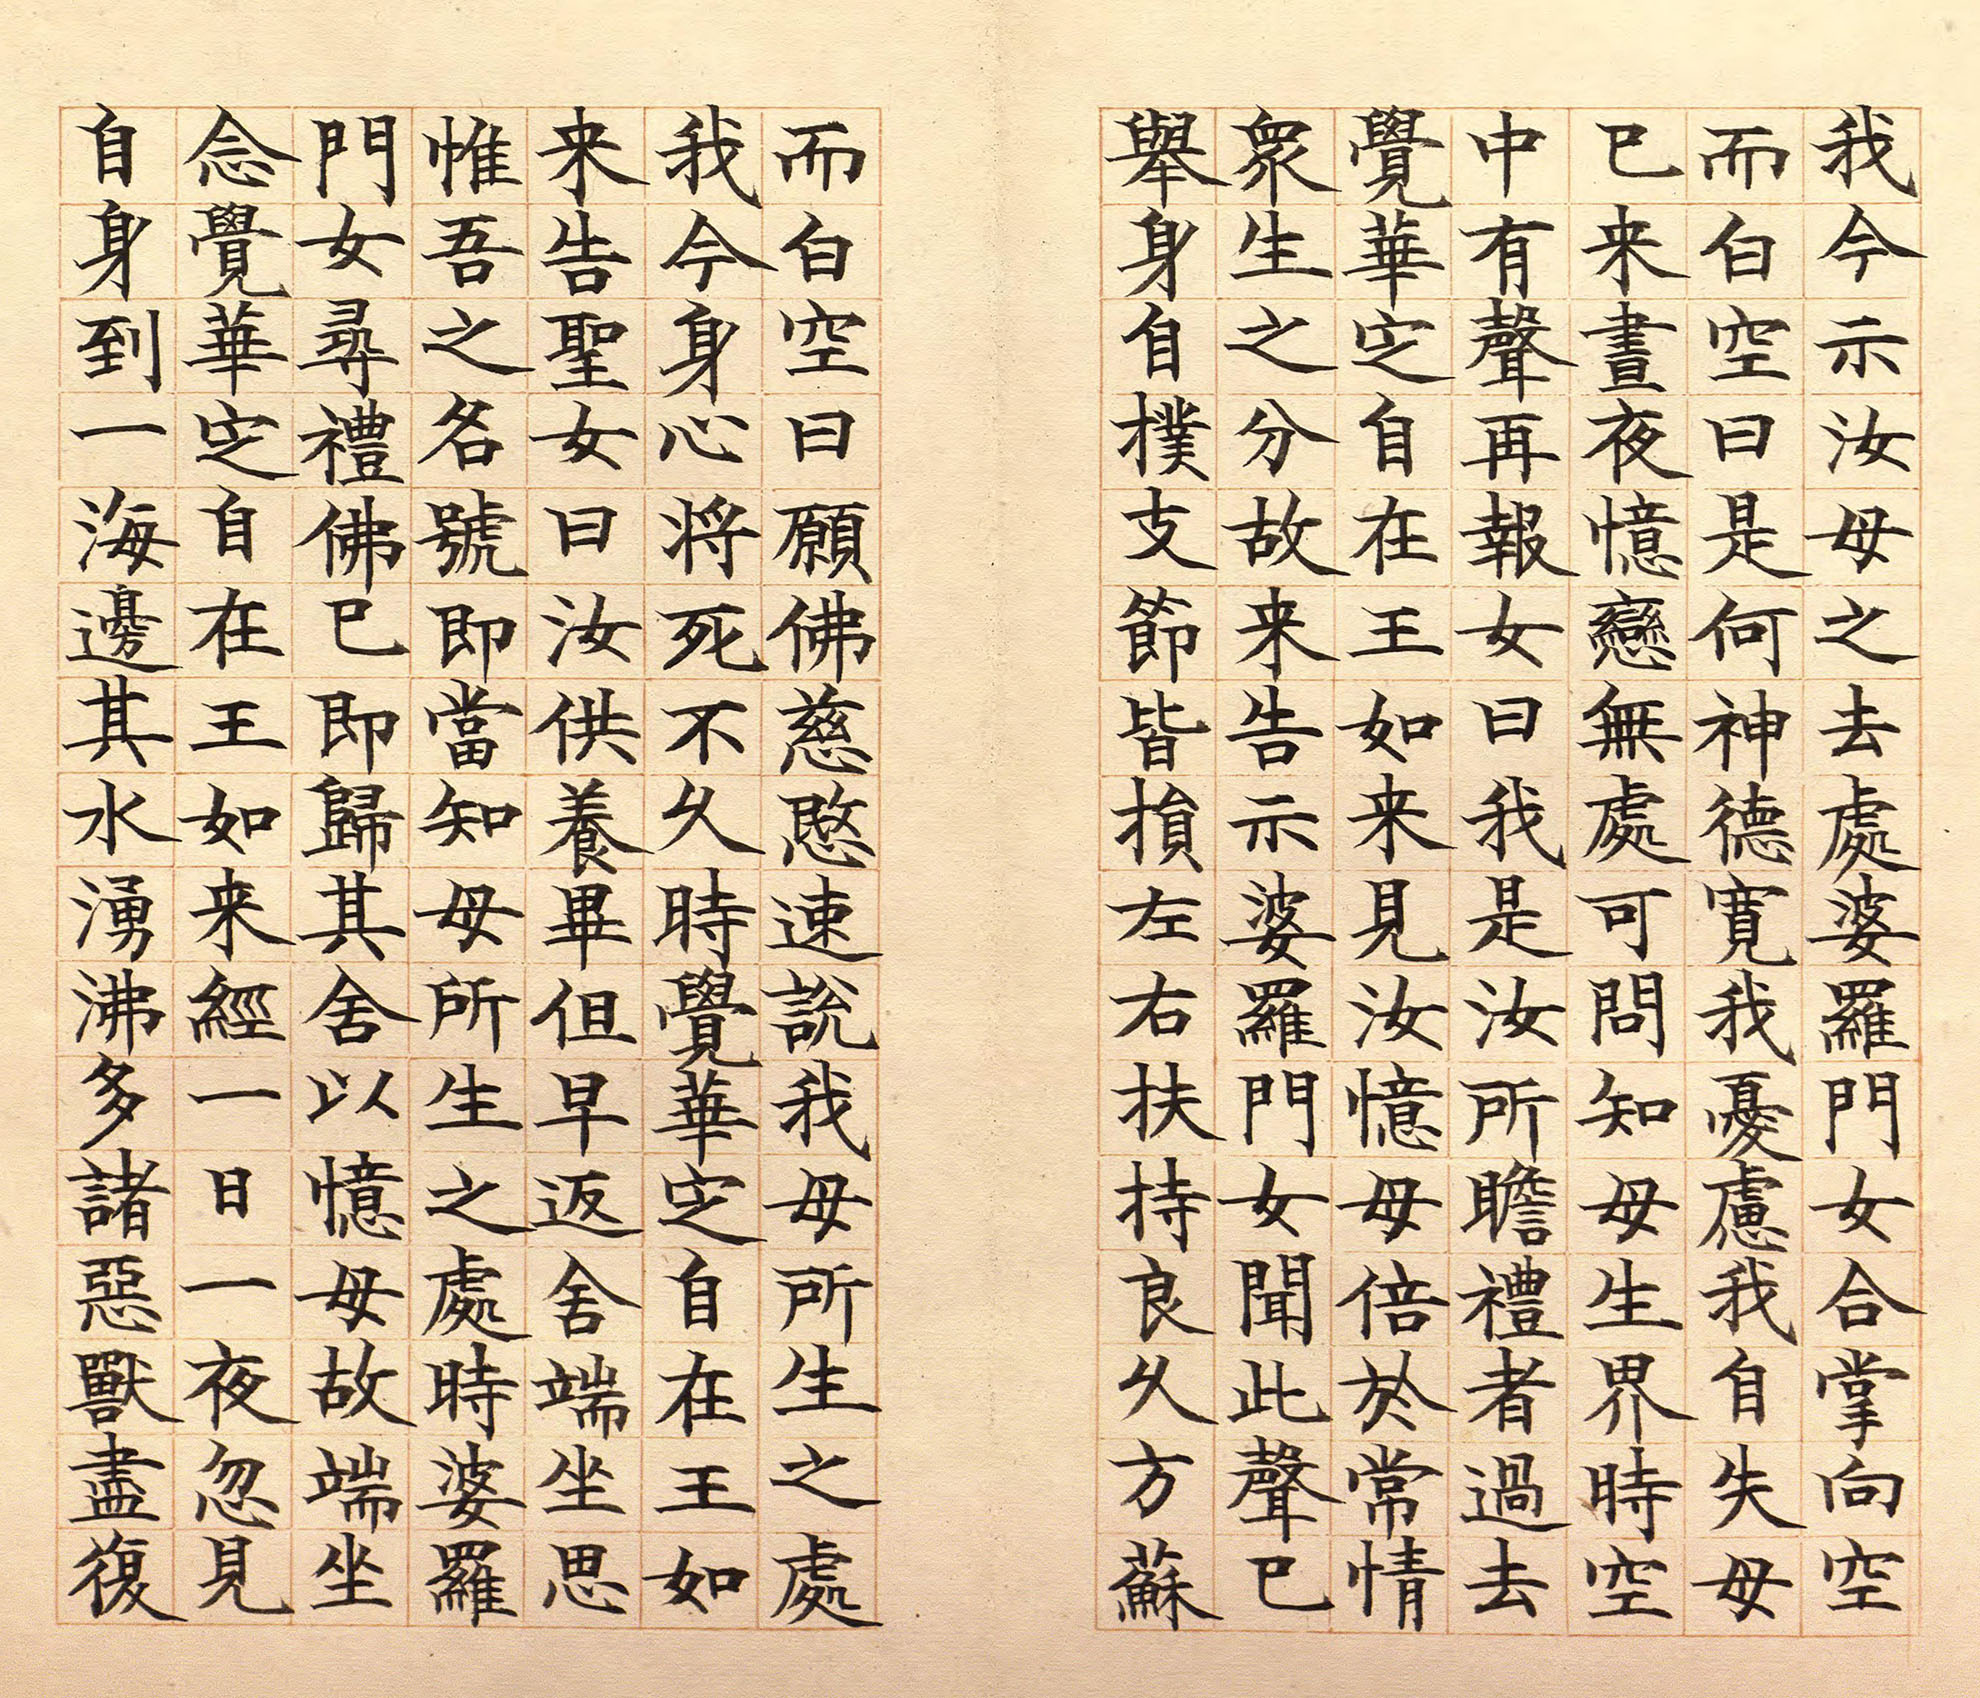 我今示汝母之去處婆羅門女合掌向空
而白空曰是何神德寬我憂慮我自失母
已来晝夜憶戀無處可問知母生界時空
中有聲再報女曰我是汝所瞻禮者過去
覺華定自在王如来見汝憶母倍於常情
衆生之分故来告示婆羅門女聞此聲已
舉身自撲支節皆損左右扶持良久方蘇
而白空曰願佛慈愍速說我母所生之處
我今身心將死不久時覺華定自在王如
来告聖女曰汝供養畢但早返舍端坐思
惟吾之名號即當知母所生之處時婆羅
門女尋禮佛已即歸其舍以憶母故端坐
念覺華定自在王如来經一日一夜忽見
自身到一海邊其水湧沸多諸惡獸盡復